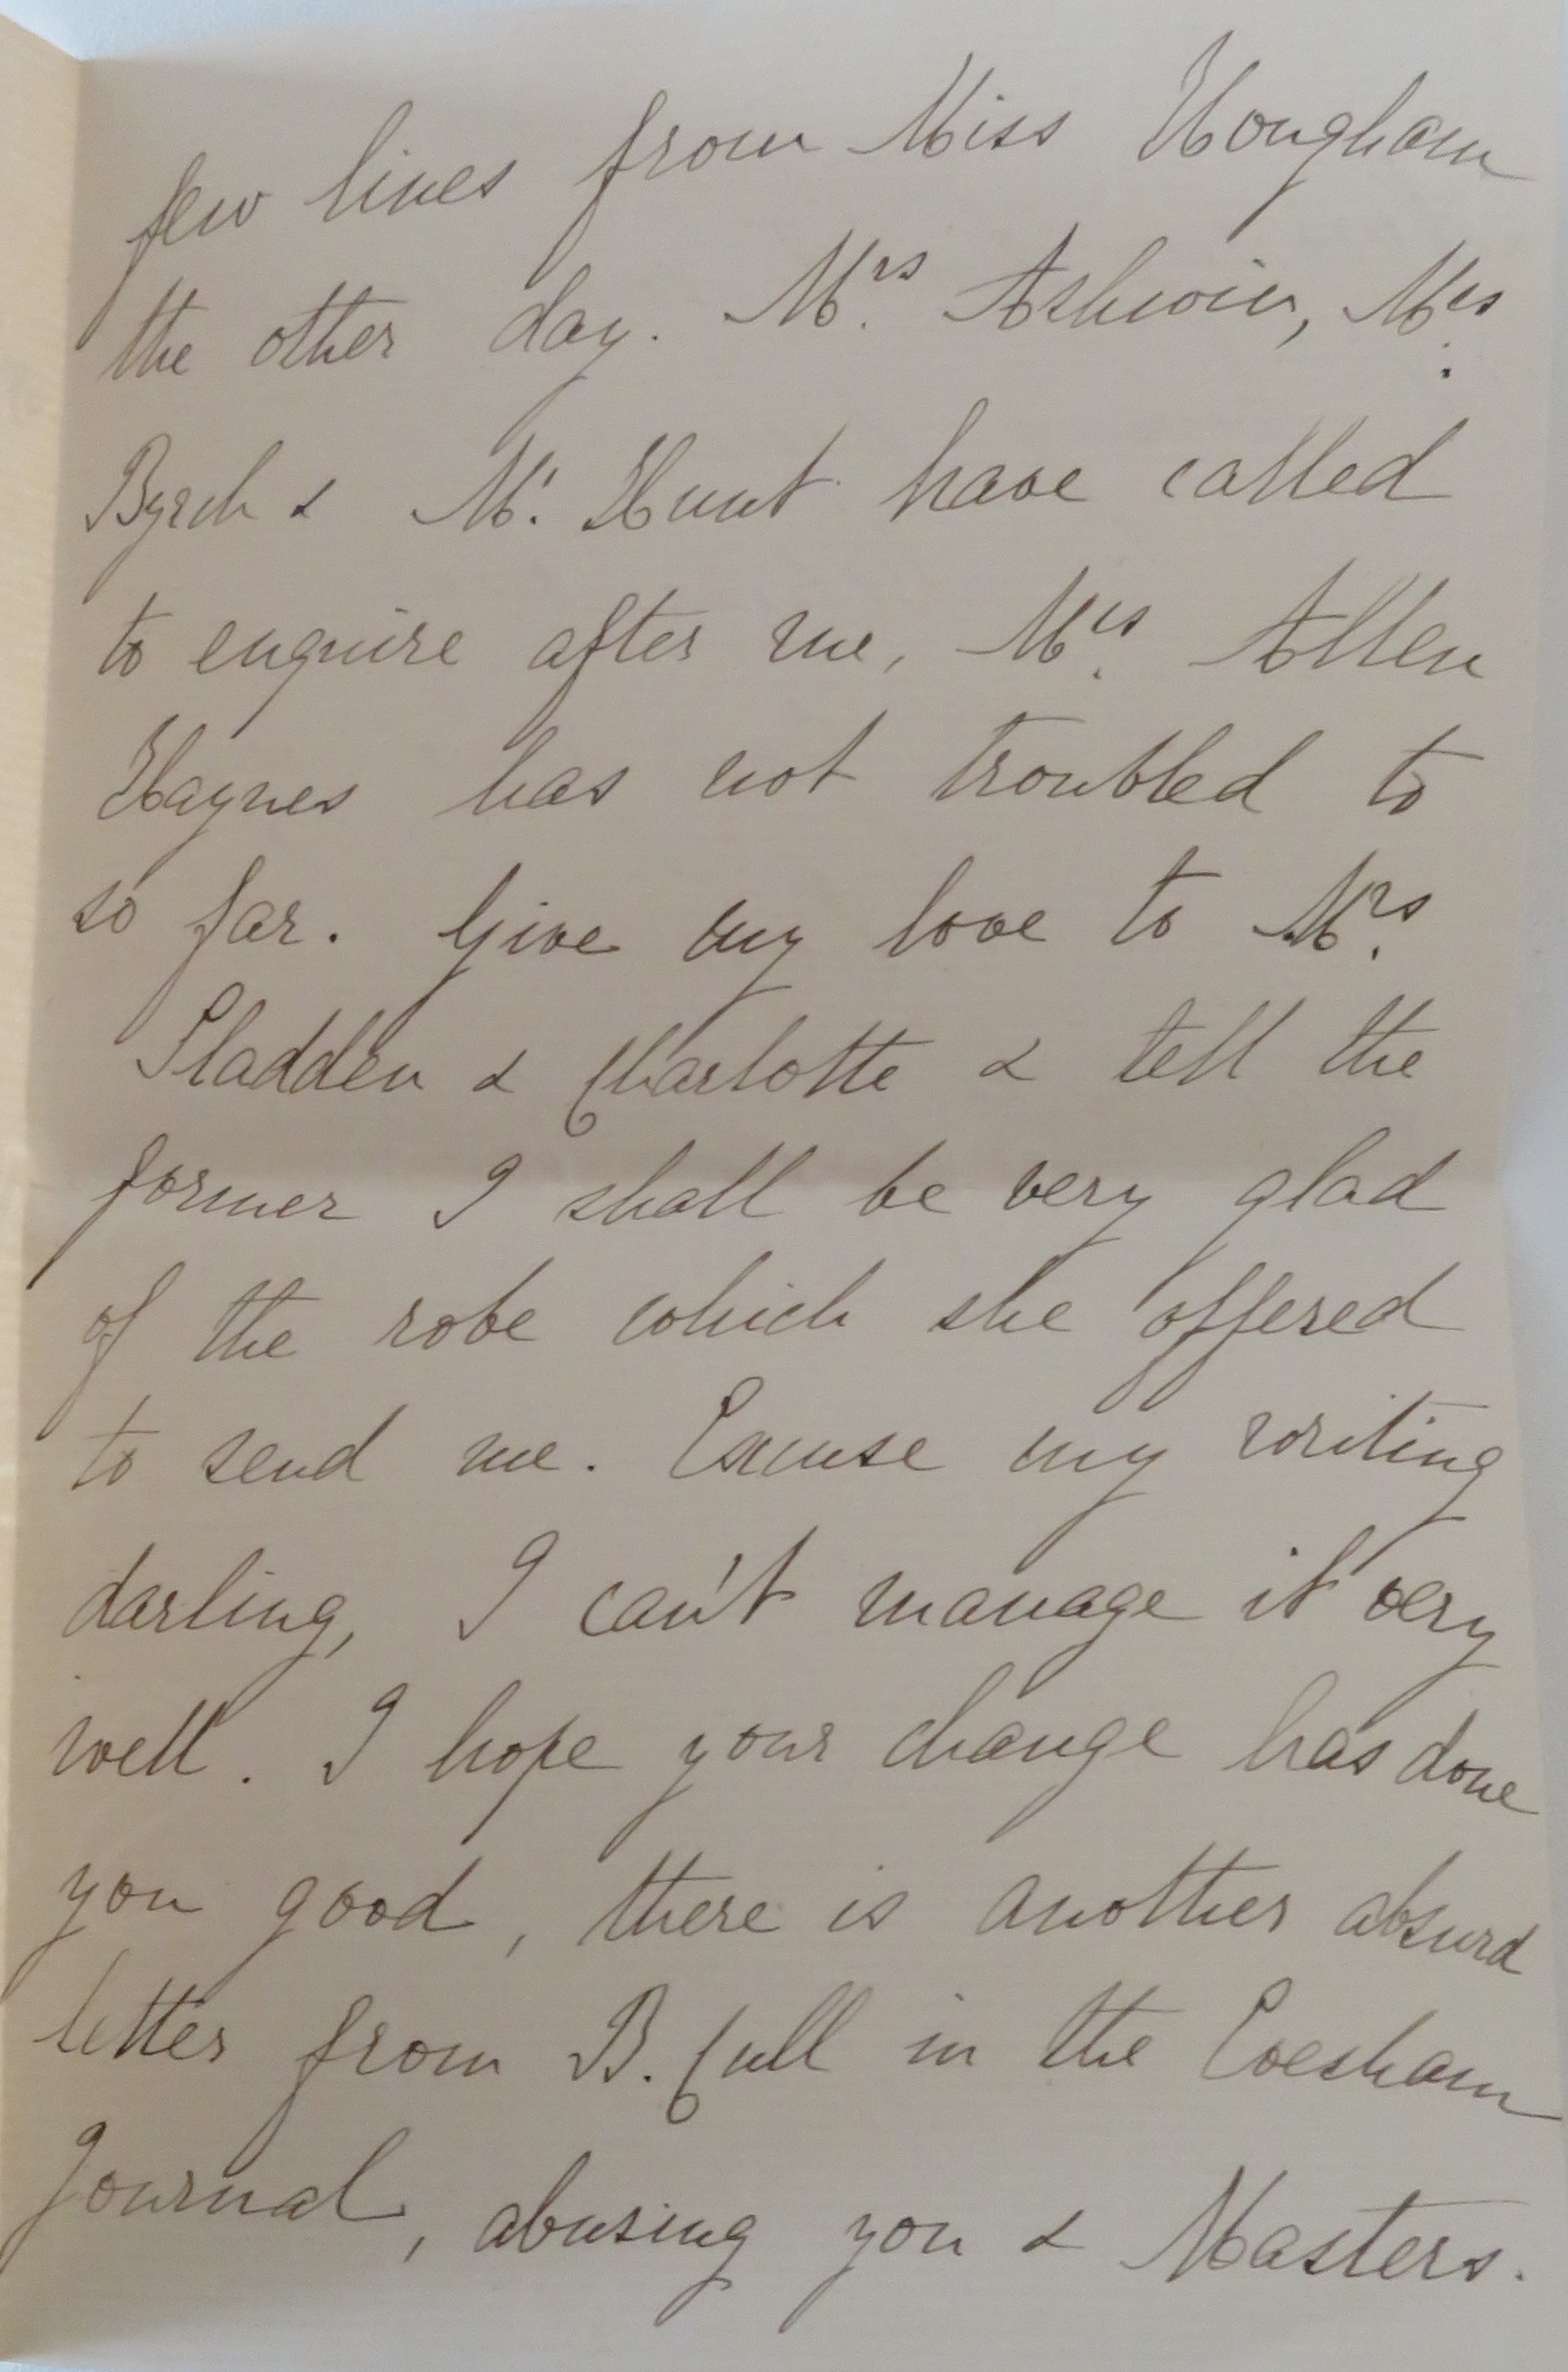 few lines from Miss Hougham
the other day. Mrs. Ashwin, Mrs.
Byrch & Mr. Hunt have called
to enquire after me, Mrs. Allen
Haynes has not troubled to
so far. Give my love to Mrs.
Sladden & Charlotte & tell the
former I shall be very glad
of the robe which she offered
to send me. Excuse my writing
darling, I can't manage it very
well. I hope your change has done
you good, there is another absurd
letter from B. Cull in the Evesham
Journal, abusing you & Masters.